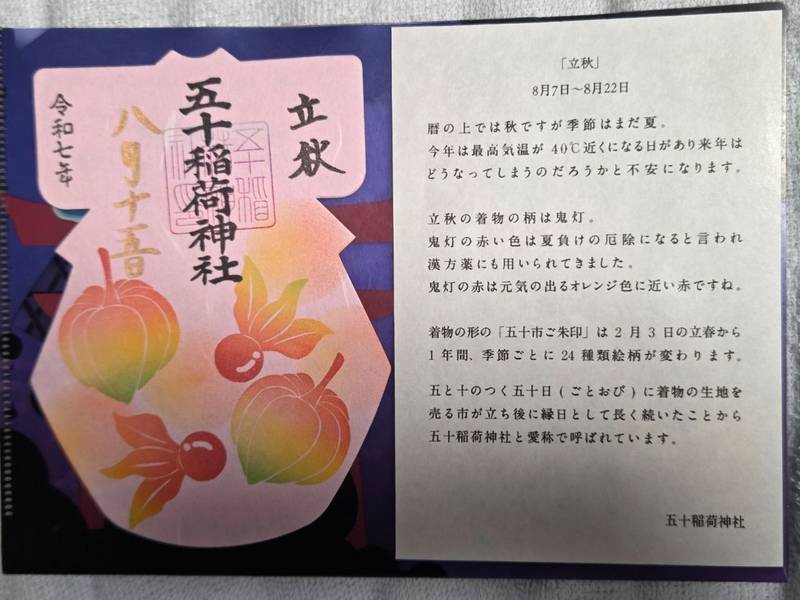 立秋
五十稲荷神社
八月十五日
令和七年
「立秋」
8月7日～8月22日
暦の上では秋ですが季節はまだ夏。
今年は最高気温が40℃近くになる日があり来年は
どうなってしまうのだろうかと不安になります。
立秋の着物の柄は鬼灯。
鬼灯の赤い色は夏負けの厄除になると言われ
漢方薬にも用いられてきました。
鬼灯の赤は元気の出るオレンジ色に近い赤ですね。
着物の形の「五十市ご朱印」は2月3日の立春から
1年間、季節ごとに24種類絵柄が変わります。
五と十のつく五十日(ごとおび)に着物の生地を
売る市が立ち後に縁日として長く続いたことから
五十稲荷神社と愛称で呼ばれています。
五十稲荷神社